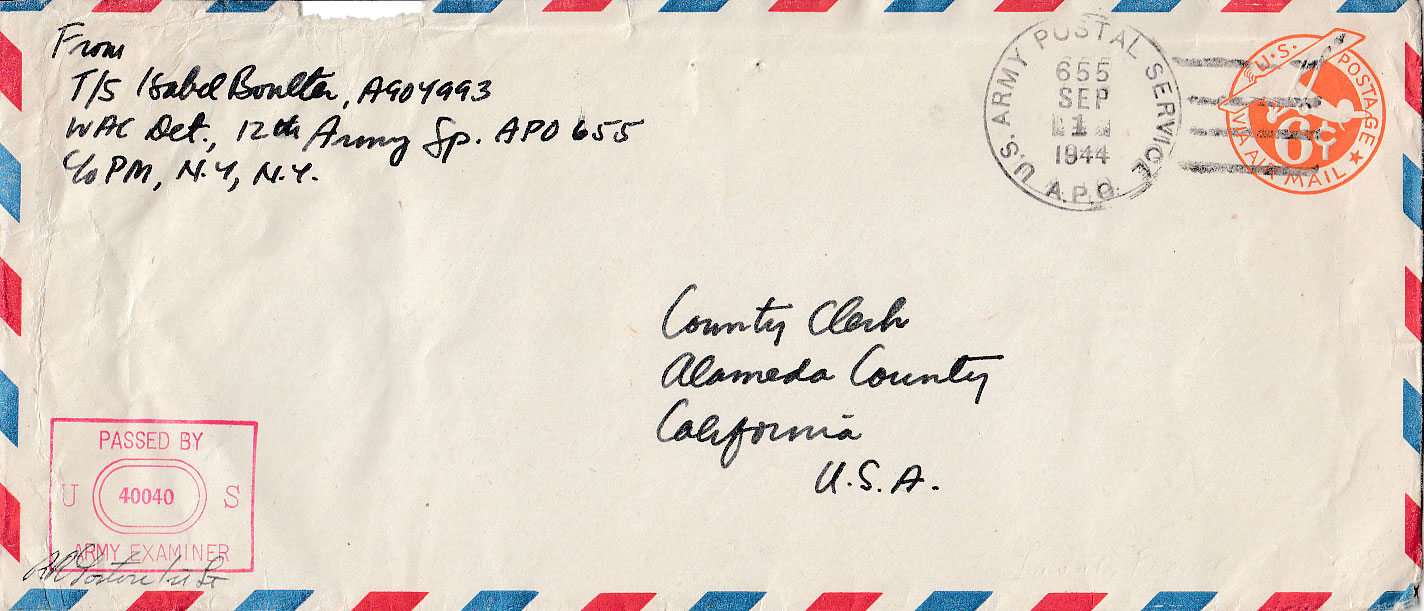 From
T/5 Isabel Boulter, A904993
WAC Det., 12th Army Gp. APO 655
c/o PM, N.Y, N.Y.
U.S. ARMY POSTAL SERVICE
655
SEP
1
1944
A.P.O.
U.S. POSTAGE
6¢
VIA AIR MAIL
County Clerk
Alameda County
California
U.S.A.
PASSED BY
U 40040 S
ARMY EXAMINER